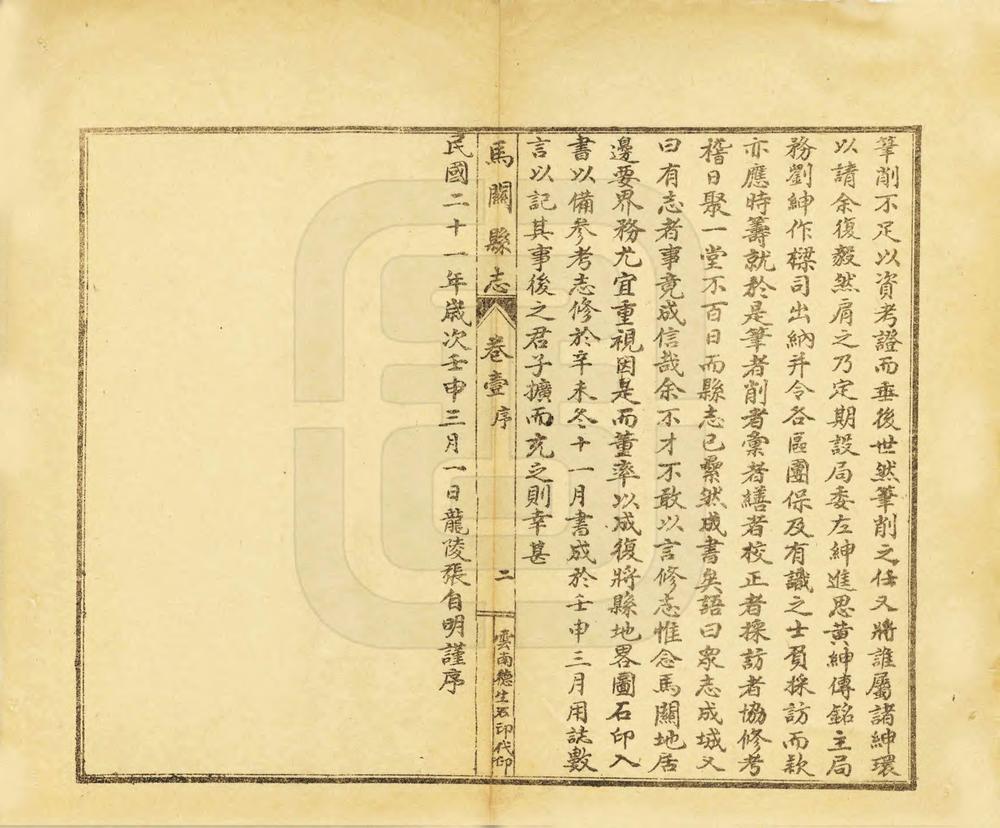 筆削不足以資考證而垂後世然筆削之任又將誰屬諸紳環
以請余復毅然肩之乃定期設局委左紳進思黄紳傳銘主局
務劉紳作樑司出納并令各區團保及有識之士負採訪而款
亦應時籌就於是筆者削者彙者繕者校正者採訪者協修考
稽日聚一堂不百日而縣志已纍然成書矣語曰衆志成城又
曰有志者事竟成信哉余不才不敢以言修志惟念馬關地居
邊要界務尤宜重視因是而董率以成復將縣地畧圖石印入
書以備參考志修於辛未冬十一月書成於壬申三月用誌數
言以記其事後之君子擴而充之則幸甚
馬關縣志 卷壹 序 二 雲南德生石印代印
民國二十一年歲次壬申三月一日龍陵張自明謹序